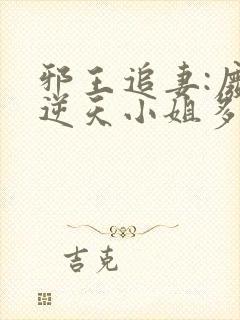 邪王追妻:废
逆天小姐多
吉克